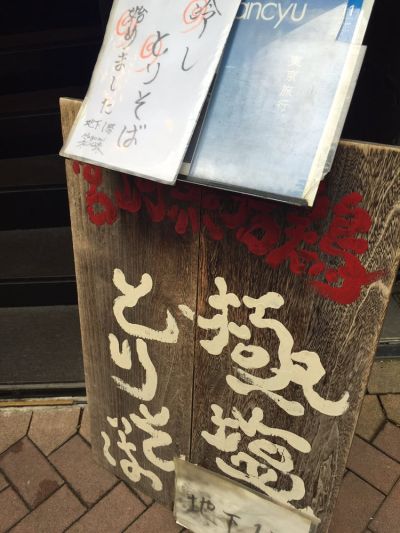 冷し
とりそば
始めました
地下1階
ancyu
東京旅行
極塩
とりそば
地下1